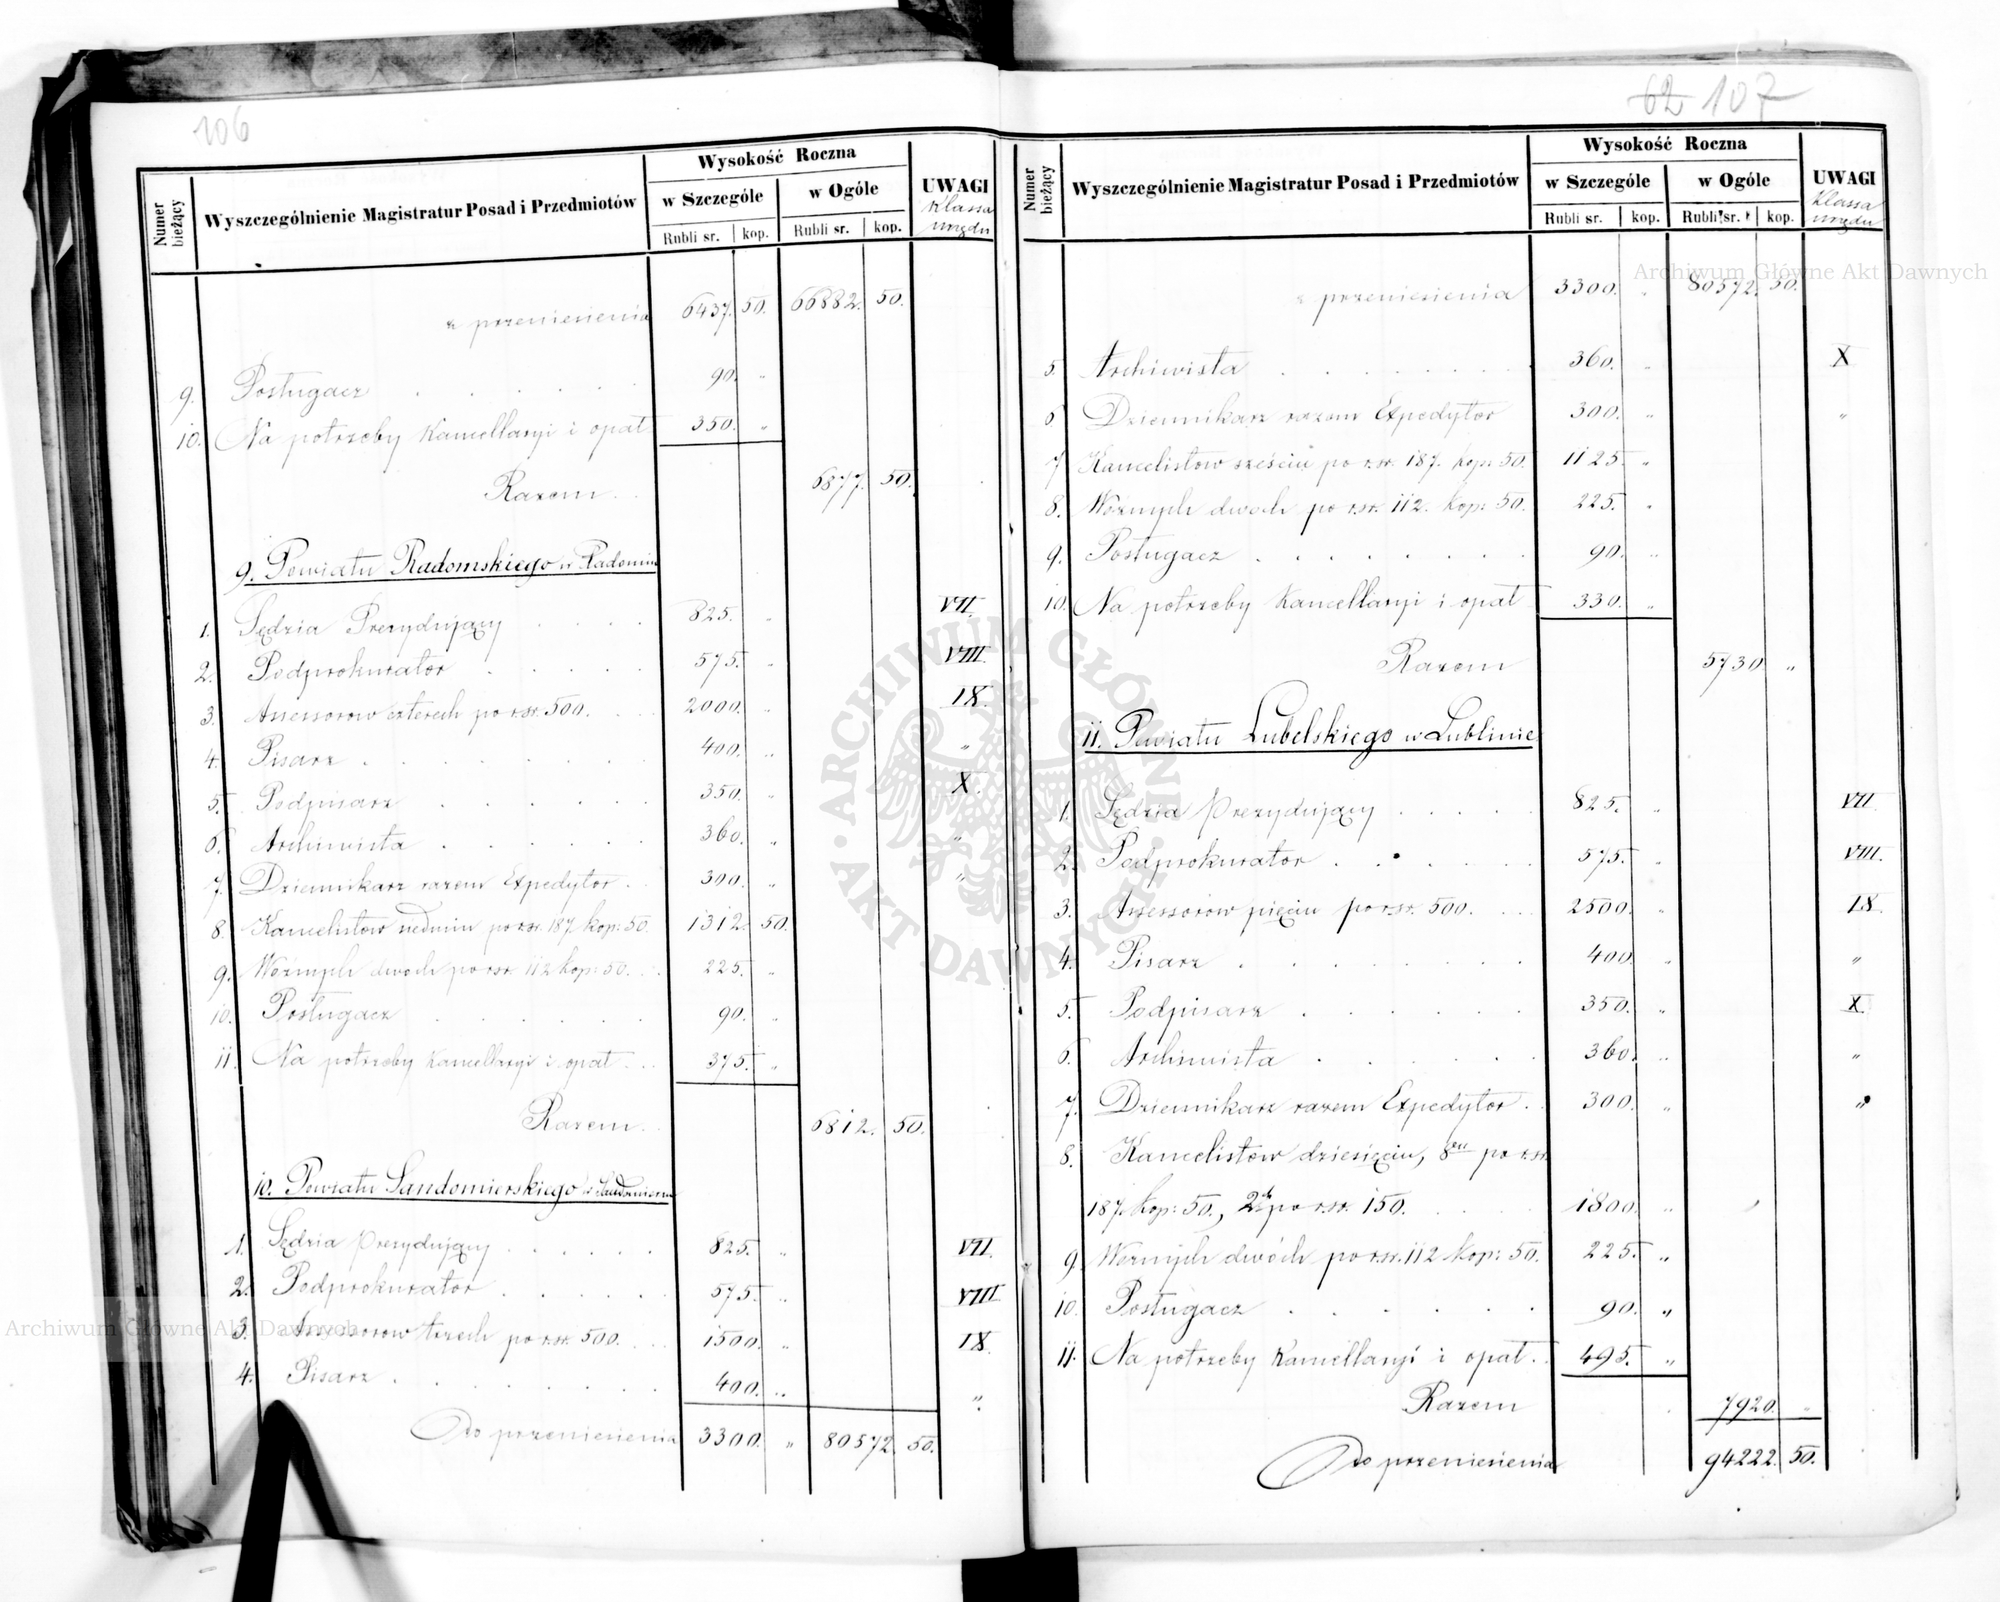 106
Numer bieżący
Wyszczególnienie Magistratur Posad i Przedmiotów
Wysokość Roczna
w Szczególe
w Ogóle
Rubli sr. kop. Rubli sr. kop.
UWAGI
Klassa
urzędu
z przeniesienia 6437. 50. 66882. 50.
9. Posługacz . . . . 90. "
10. Na potrzeby Kancellaryi i opał 350. "
Razem . . 6877. 50.
9. Powiatu Radomskiego w Radomiu
1. Sędzia Prezydujący . . . . 825. " VII.
2. Podprokurator . . . . 575. " VIII.
3. Assessorów czterech po rsr. 500. . . 2000. " IX.
4. Pisarz . . . . . . . 400. " "
5. Podpisarz . . . . . 350. " X.
6. Archiwista . . . . . 360. " "
7. Dziennikarz razem Expedytor . . 300. " "
8. Kancelistów siedmiu po rsr. 187 kop: 50. 1312. 50.
9. Woźnych dwóch po rsr. 112 kop: 50. . . 225. "
10. Posługacz . . . . . . 90. "
11. Na potrzeby Kancellaryi i opał . . . 375. "
Razem . . 6812. 50.
10. Powiatu Sandomierskiego w Sandomierzu
1. Sędzia Prezydujący . . . . . . 825. " VII.
2. Podprokurator . . . . . . 575. " VIII.
3. Assessorów trzech po rsr. 500. . . . 1500. " IX.
4. Pisarz . . . . . . . 400. " "
Do przeniesienia 3300. " 80572. 50.
62 107
Numer bieżący
Wyszczególnienie Magistratur Posad i Przedmiotów
Wysokość Roczna
w Szczególe
w Ogóle
Rubli sr. kop. Rubli sr. kop.
UWAGI
Klassa
urzędu
z przeniesienia 3300. " 80572. 50.
5. Archiwista . . . . . . . 360. " X
6 Dziennikarz razem Expedytor 300. " "
7 Kancelistów sześciu po rsr. 187. kop: 50. 1125. "
8. Woźnych dwóch po rsr. 112. kop: 50. 225. "
9. Posługacz . . . . . . . 90. "
10. Na potrzeby Kancellaryi i opał 330. "
Razem 5730 "
11. Powiatu Lubelskiego w Lublinie
1. Sędzia Prezydujący . . . . . 825. " VII.
2. Podprokurator . . . . . 575. " VIII.
3. Assessorów pięciu po rsr. 500. . . . 2500. " IX.
4. Pisarz . . . . . . . 400. " "
5. Podpisarz . . . . . . 350. " X.
6. Archiwista . . . . . 360. " "
7. Dziennikarz razem Expedytor . . 300. " "
8. Kancelistów dziesięciu, 8miu po rsr.
187. kop: 50., 2ch po rsr. 150. . . . . 1800. "
9. Woźnych dwóch po rsr. 112 kop: 50. 225. "
10. Posługacz . . . . . . 90. "
11. Na potrzeby Kancellaryi i opał . . 495. "
Razem 7920. "
Do przeniesienia 94222. 50.
Archiwum Główne Akt Dawnych
ARCHIWUM GŁÓWNE · AKT DAWNYCH ·
Archiwum Główne Akt Dawnych